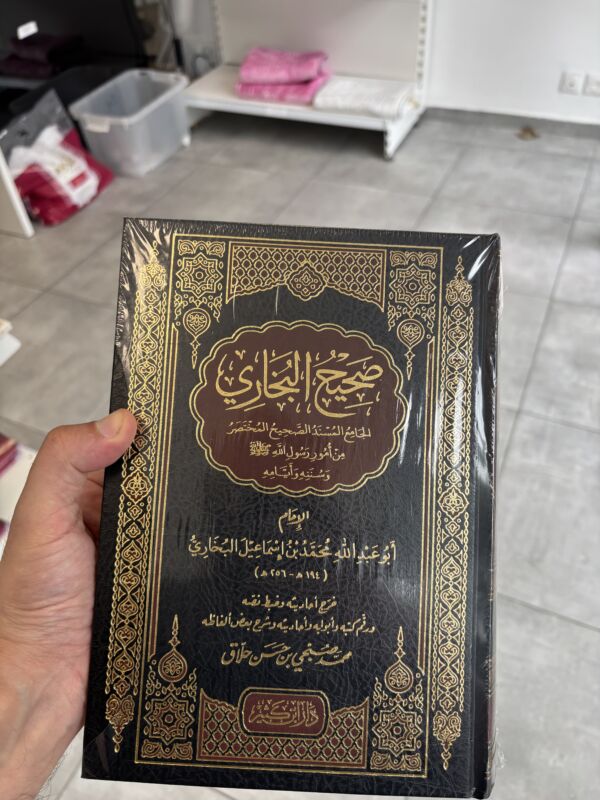 صَحِيحُ البُخَارِي
الجَامِعُ المُسْنَدُ الصَّحِيحُ المُخْتَصَرُ
مِنْ أُمُورِ رَسُولِ اللهِ ﷺ
وَسُنَنِهِ وَأَيَّامِهِ
الإِمَام
أَبُو عَبْدِ اللهِ مُحَمَّدُ بْنُ إِسْمَاعِيلَ البُخَارِيُّ
(١٩٤ هـ - ٢٥٦ هـ)
خرّج أحاديثه وضبط نصّه
ورقّم كتبه وأبوابه وأحاديثه وشرح بعض ألفاظه
محمد صبحي بن حسن حلّاق
دَارُ ابن كَثير